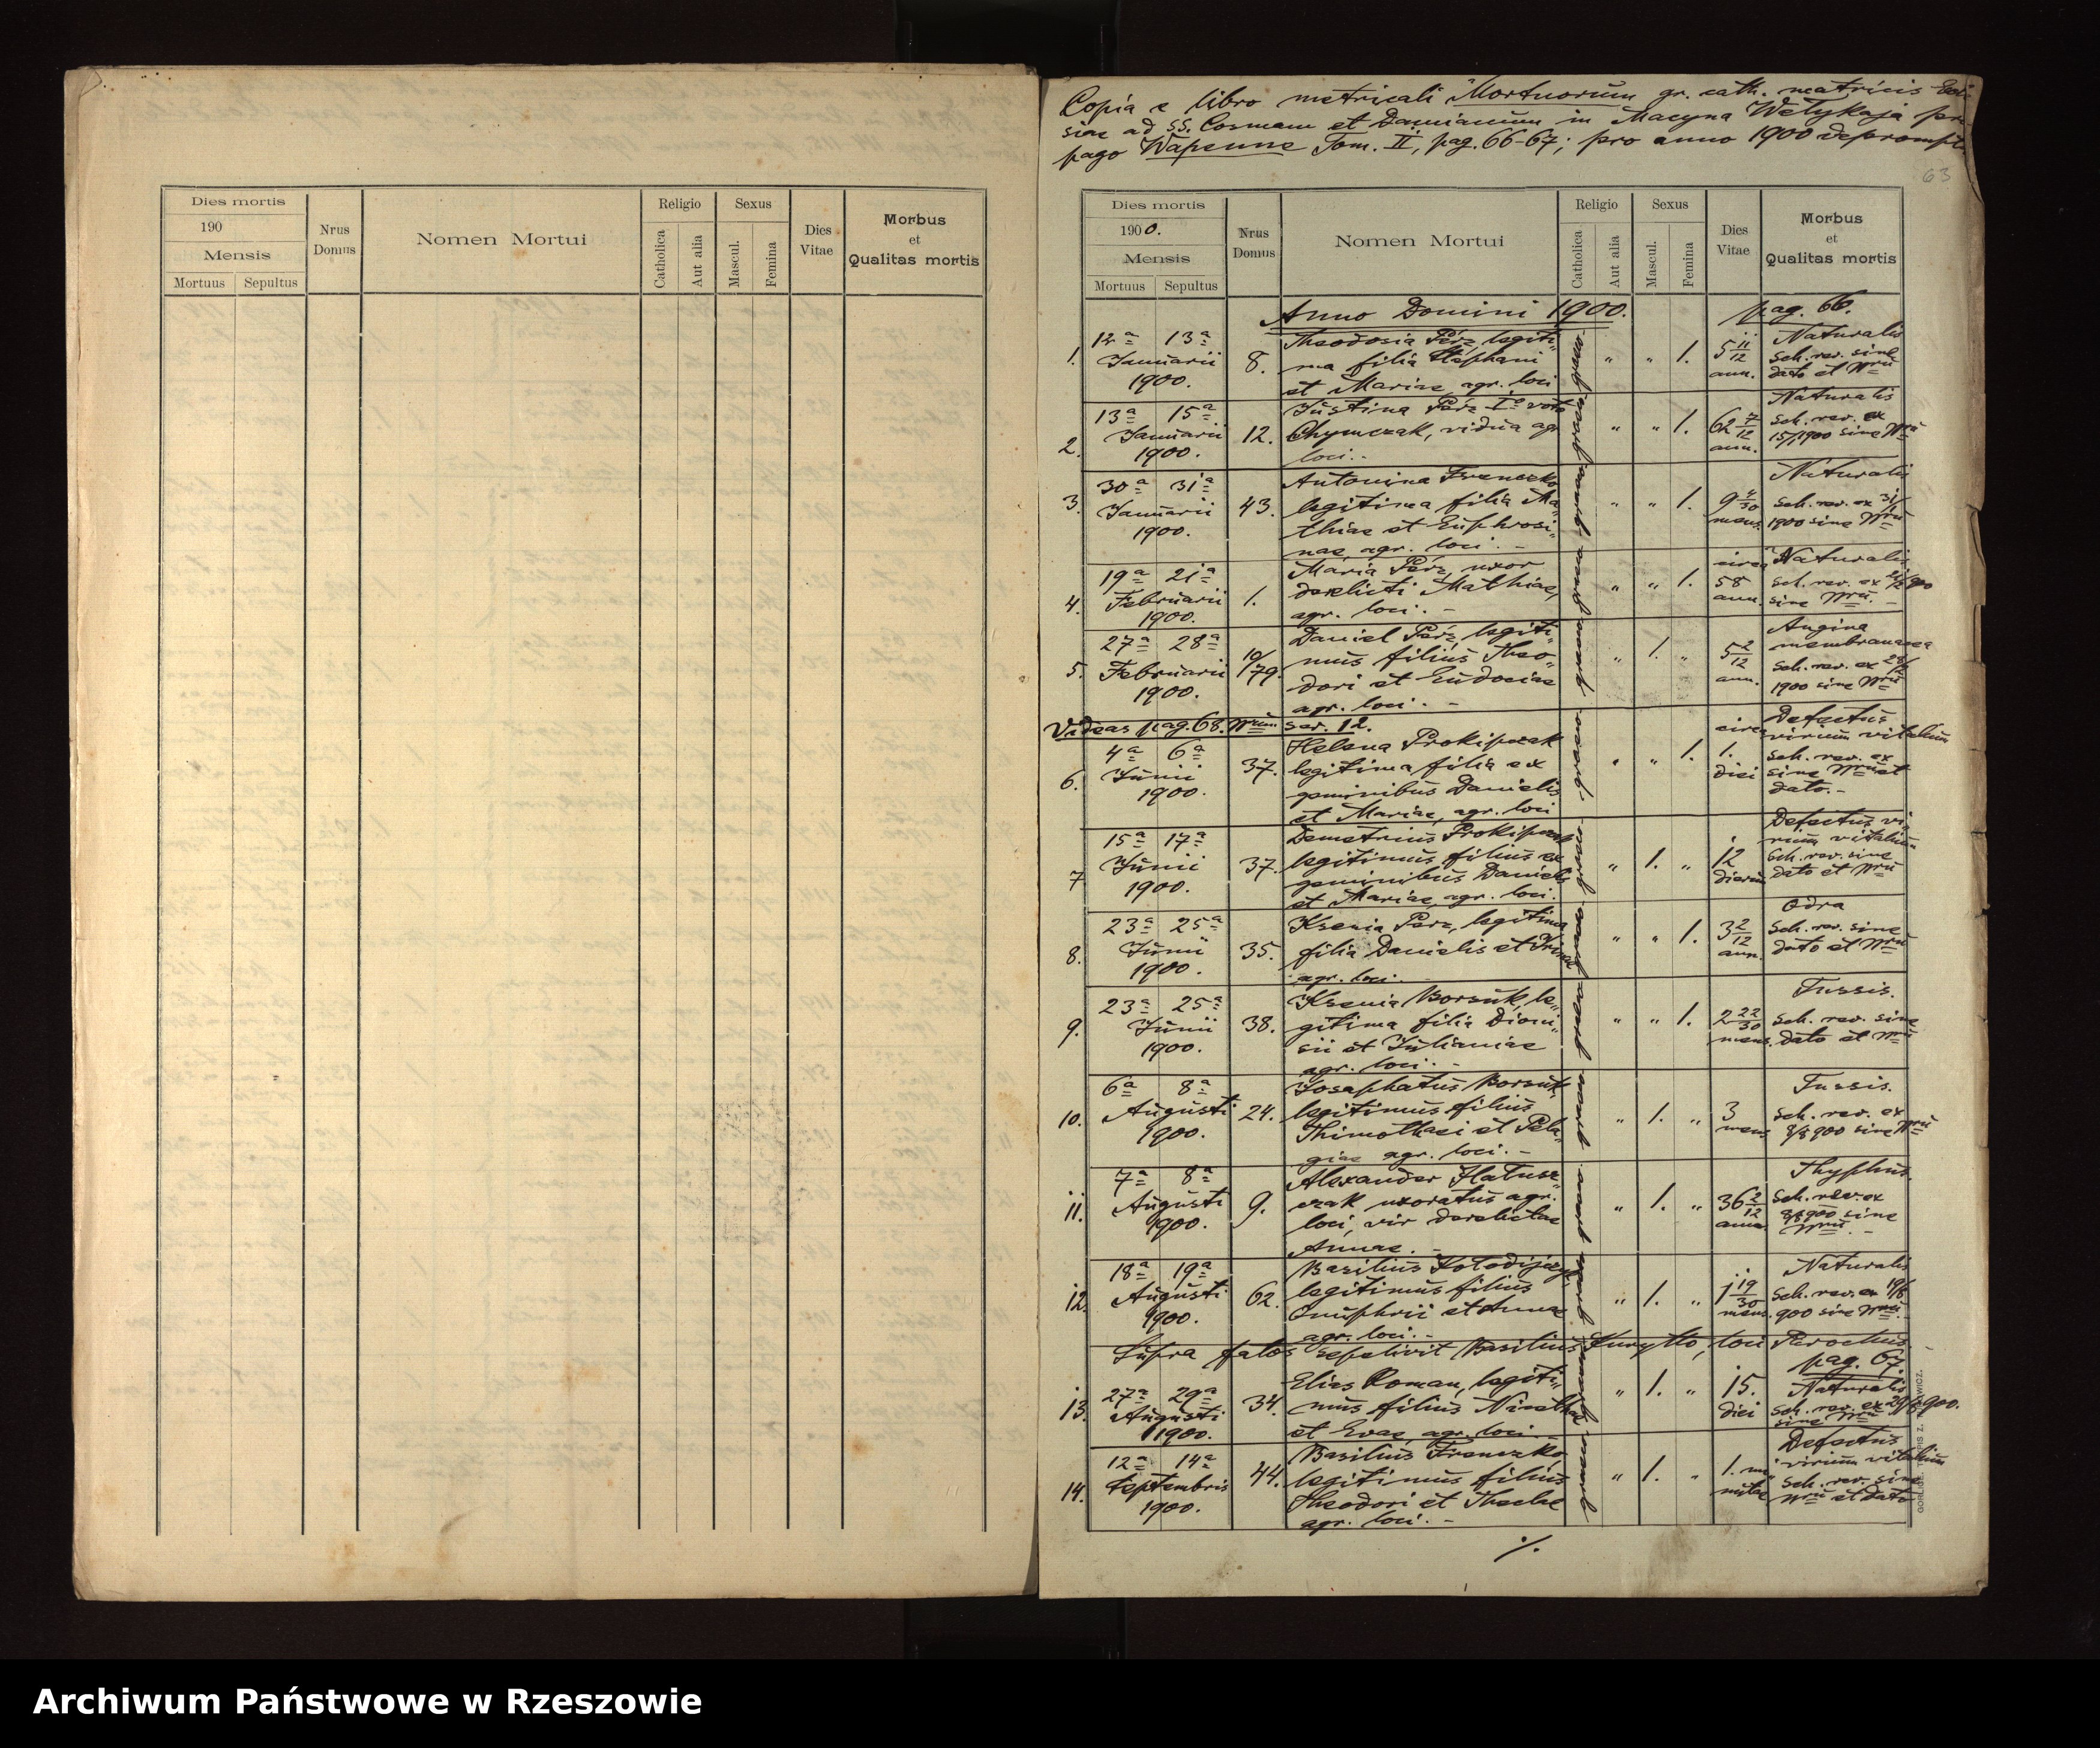 Dies mortis
190
Mensis
Mortuus Sepultus
Nrus Domus
Nomen Mortui
Religio
Catholica Aut alia
Sexus
Mascul. Femina
Dies Vitae
Morbus et Qualitas mortis
Copia e libro metricali Mortuorum gr. cath. matricis Eccle
siae ad S.S. Cosmam et Damianum in Macyna Wełykaja pro
pago Wapenne Tom. II, pag. 66-67; pro anno 1900 deprompt.
63
Dies mortis
1900.
Mensis
Mortuus Sepultus
Nrus Domus
Nomen Mortui
Religio
Catholica Aut alia
Sexus
Mascul. Femina
Dies Vitae
Morbus et Qualitas mortis
Anno Domini 1900. pag. 66.
1. 12a 13a Januarii 1900. 8.
Theodosia Perz, legiti-
ma filia Stephani
et Mariae, agr. loci
graeco " " 1. 5 11/12 ann.
Naturalis
Sch. rev. sine
dato et Nru
2. 13a 15a Januarii 1900. 12.
Justina Perz Io voto
Chymczak, vidua agr
loci.-
graeca " " 1. 62 7/12 ann.
Naturalis
Sch. rev. ex
15/1 1900 sine Nru
3. 30a 31a Januarii 1900. 43.
Antonina Frenczko
legitima filia Ma-
thiae et Euphrosi-
nae, agr. loci.-
graeca " " 1. 9 4/30 mens.
Naturalis
Sch. rev. ex 31/1
1900 sine Nru
4. 19a 21a Februarii 1900. 1.
Maria Perz, uxor
derelicti Mathiae,
agr. loci.-
graeca " " 1. circa 58 ann.
Naturalis
Sch. rev. ex 21/2 900
sine Nru.-
5. 27a 28a Februarii 1900. 10/79.
Daniel Perz, legiti-
mus filius Theo-
dori et Eudociae
agr. loci.-
graeca " 1. " 5 2/12 ann.
Angina
membranacea
Sch. rev. ex 28/2
1900 sine Nru
Videas pag. 68. Nrum ser. 12.
6. 4a 6a Junii 1900. 37.
Helena Prokipczak
legitima filia ex
geminibus Danielis
et Mariae, agr. loci
graeco " " 1. circa 1. diei
Defectus
virium vitalium
Sch. rev. ex
sine Nru et
dato.-
7 15a 17a Junii 1900. 37.
Demetrius Prokipczak
legitimus filius ex
geminibus Danielis
et Mariae, agr. loci.
graeco " 1. " 12 dierum
Defectus vi-
rium vitalium
Sch. rev. sine
dato et Nru
8. 23a 25a Junii 1900. 35.
Ksenia Perz, legitima
filia Danielis et Irinae
agr. loci.
graeca " " 1. 3 2/12 ann.
Odra
Sch. rev. sine
dato et Nru
9. 23a 25a Junii 1900. 38.
Ksenia Borsuk, le-
gitima filia Dioni-
sii et Julianiae
agr. loci.-
graeca " " 1. 2 22/30 mens.
Tussis.
Sch. rev. sine
dato et Nru
10. 6a 8a Augusti 1900. 24.
Josaphatus Borsuk
legitimus filius
Thimothaei et Pela-
giae agr. loci.-
graeca " 1. " 3 mens.
Tussis.
Sch. rev. ex
8/8 900 sine Nru
11. 7a 8a Augusti 1900. 9.
Alexander Hatusz-
czak uxoratus agr.
loci, vir derelictae
Annae.-
graeca " 1. " 36 2/12 ann.
Thyphus.
Sch. rev. ex
8/8 900 sine
Nru.-
12. 18a 19a Augusti 1900. 62.
Basilius Kołodijczyk
legitimus filius
Onuphrii et Annae
agr. loci.-
graeca " 1. " 1 19/30 mens.
Naturalis
Sch. rev. ex 19/8
900 sine Nru.
Supra fatos sepelivit Basilius Kuryłło, loci Parochus.
pag. 67.
13. 27a 29a Augusti 1900. 34.
Elias Roman, legiti-
mus filius Nicethae
et Evae, agr. loci.-
graeca " 1. " 15. diei
Naturalis
Sch. rev. ex 29/8 900.
sine Nru
14. 12a 14a Septembris 1900. 44.
Basilius Frenczko,
legitimus filius
Theodori et Theclae
agr. loci.-
graeca " 1. " 1. mi-
nutae
Defectus
virium vitalium
Sch. rev. sine
Nru et dato
./.
Archiwum Państwowe w Rzeszowie